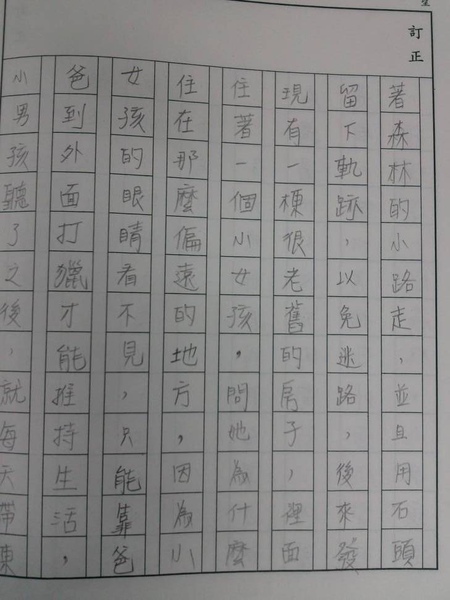 訂正
著森林的小路走，並且用石頭
留下軌跡，以免逃路，後來發
現有一棟很老舊的房子，裡面
住著一個小女孩，問她為什麼
住在那麼偏遠的地方，因為小
女孩的眼睛看不見，只能靠爸
爸到外面打獵才能推持生活，
小男孩聽了之後，就每天帶東